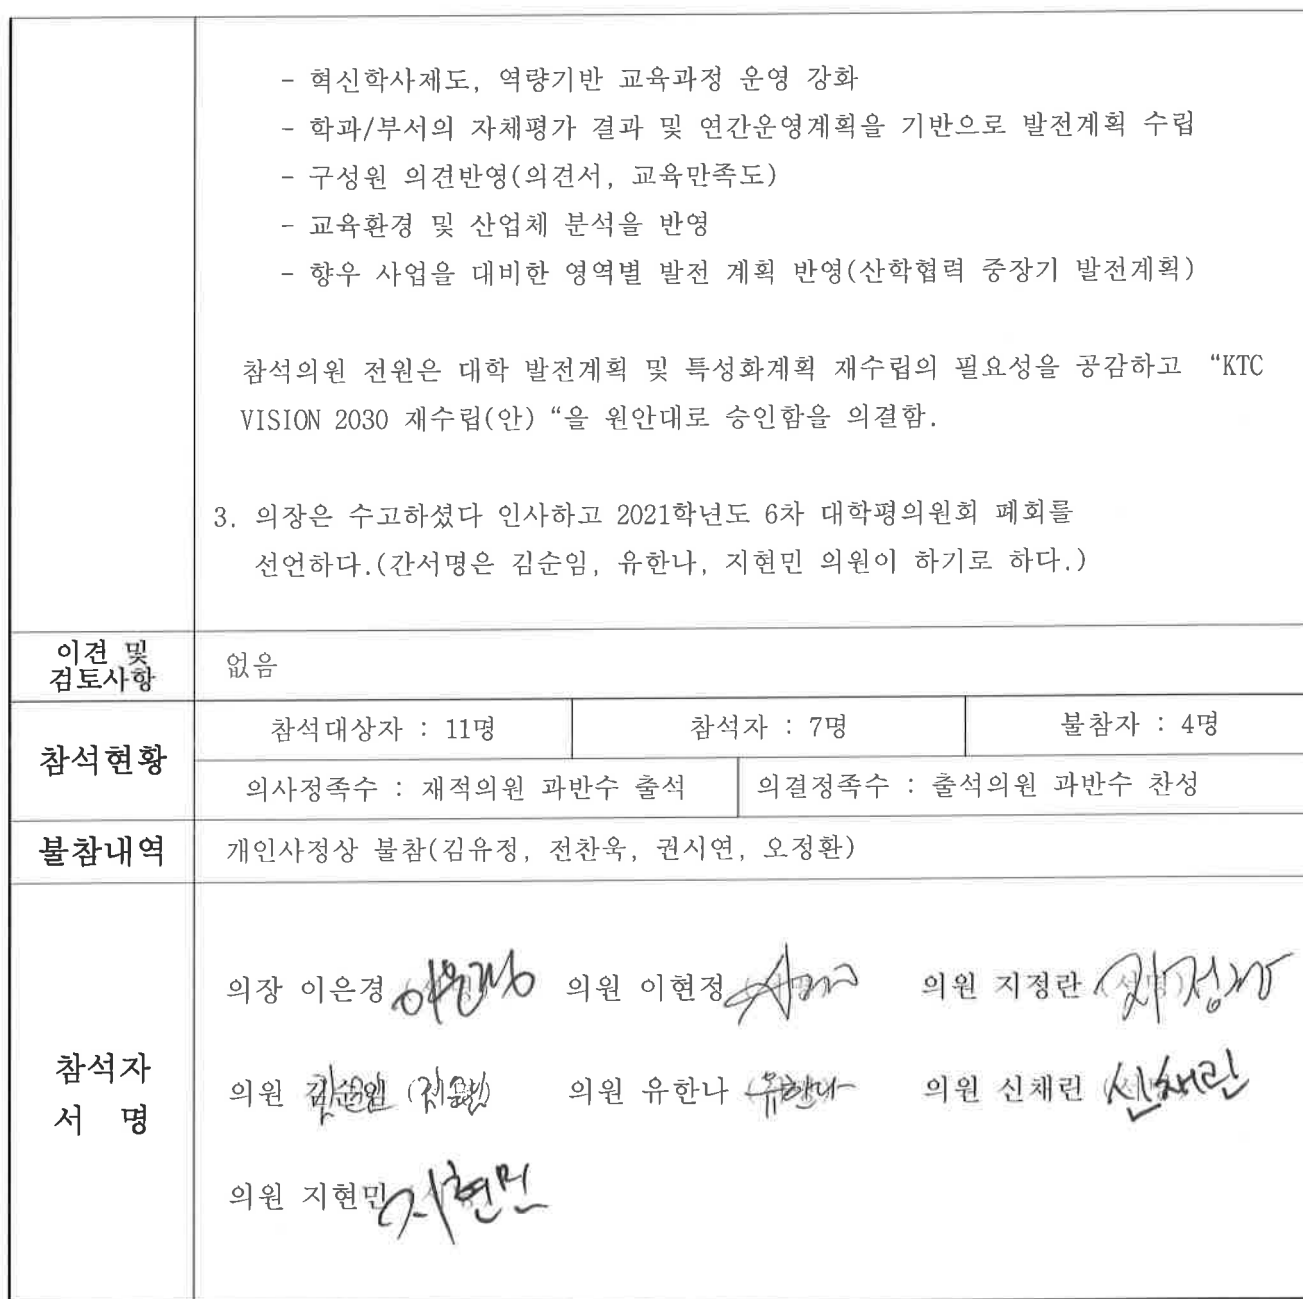 - 혁신학사제도, 역량기반 교육과정 운영 강화
- 학과/부서의 자체평가 결과 및 연간운영계획을 기반으로 발전계획 수립
- 구성원 의견반영(의견서, 교육만족도)
- 교육환경 및 산업체 분석을 반영
- 향우 사업을 대비한 영역별 발전 계획 반영(산학협력 중장기 발전계획)
참석의원 전원은 대학 발전계획 및 특성화계획 재수립의 필요성을 공감하고 “KTC
VISION 2030 재수립(안) “을 원안대로 승인함을 의결함.
3. 의장은 수고하셨다 인사하고 2021학년도 6차 대학평의원회 폐회를
선언하다.(간서명은 김순임, 유한나, 지현민 의원이 하기로 하다.)
이견 및
검토사항
없음
참석현황
참석대상자 : 11명 참석자 : 7명 불참자 : 4명
의사정족수 : 재적의원 과반수 출석 의결정족수 : 출석의원 과반수 찬성
불참내역
개인사정상 불참(김유정, 전찬욱, 권시연, 오정환)
참석자
서 명
의장 이은경 의원 이현정 의원 지정란
의원 김순임 의원 유한나 유한나 의원 신채린 신채린
의원 지현민 지현민